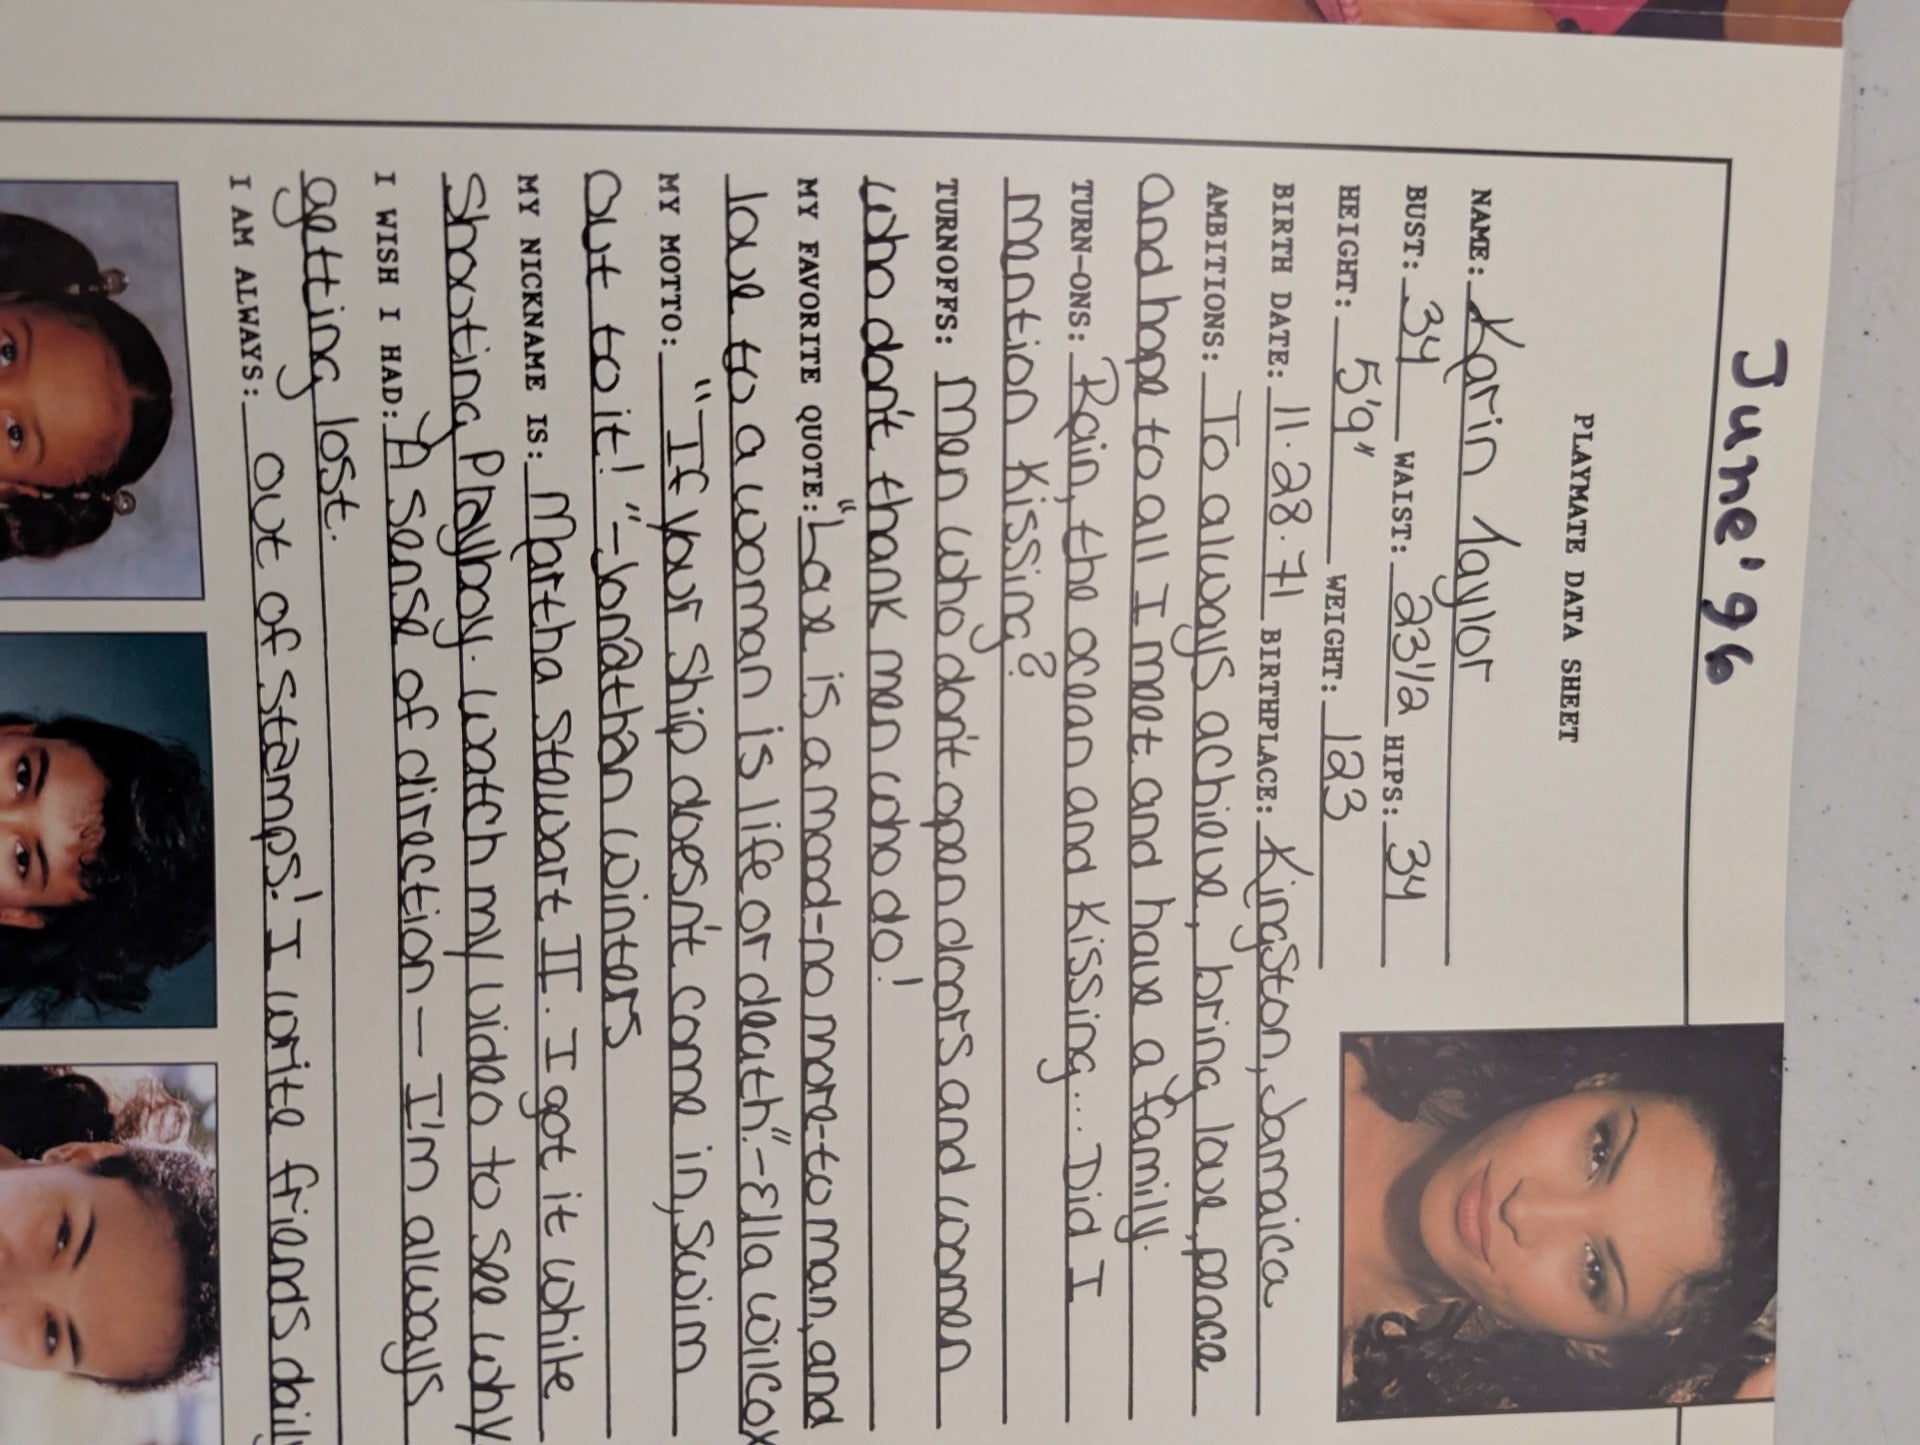 June '96
PLAYMATE DATA SHEET
NAME: Karin Taylor
BUST: 34 WAIST: 23 1/2 HIPS: 34
HEIGHT: 5'9" WEIGHT: 123
BIRTH DATE: 11.28.71 BIRTHPLACE: Kingston, Jamaica
AMBITIONS: To always achieve, bring love, peace
and hope to all I meet and have a family.
TURN-ONS: Rain, the ocean and kissing... Did I
mention kissing?
TURNOFFS: Men who don't open doors and women
who don't thank men who do!
MY FAVORITE QUOTE: "Love is a mood-no more-to man, and
love to a woman is life or death."-Ella Wilcox
MY MOTTO: "If your ship doesn't come in, swim
out to it!"-Jonathan Winters
MY NICKNAME IS: Martha Stewart II. I got it while
shooting Playboy. Watch my video to see why
I WISH I HAD: A sense of direction — I'm always
getting lost.
I AM ALWAYS: out of stamps! I write friends daily